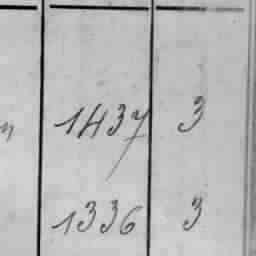 n 1437 3
1336 3